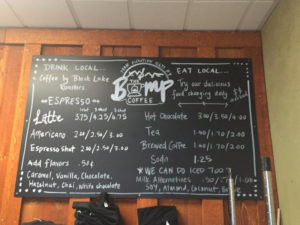 DRINK LOCAL...
Coffee by Black Lake
Roasters
ESPRESSO
1 shot 2 shot 3 shot
Latte 3.75/4.25/4.75
Americano 2.00/2.50/3.00
Espresso Shot 2.00/2.50/3.00
Add flavors .50¢
Caramel, Vanilla, Chocolate,
Hazelnut, Chai, White chocolate
THE
Bump
COFFEE
EAT LOCAL...
Try our delicious
food changing daily
Hot Chocolate 2.00/2.50/3.00
Tea 1.40/1.70/2.00
Brewed Coffee 1.40/1.70/2.00
Soda 1.25
*WE CAN DO ICED TOO
Milk Alternatives
Soy, Almond, Coconut,